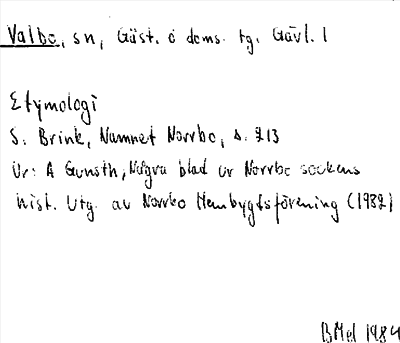 Valbo, sn, Gäst. o doms. tg. Gävl. l
Etymologi
S. Brink, Namnet Norrbo, s. 213
Ur: A Gunsth, Några blad ur Norrbo sockens
hist. Utg. av Norrbo Hembygdsförening (1982)
BMel 1984